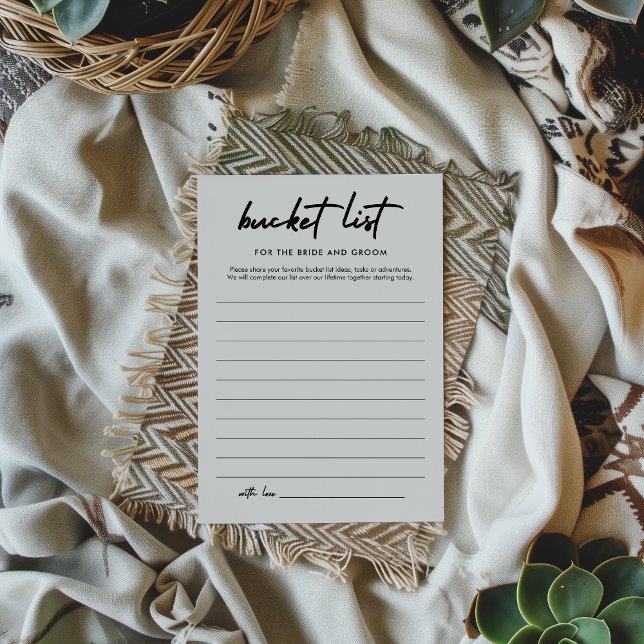 bucket list
FOR THE BRIDE AND GROOM
Please share your favorite bucket list ideas, tasks or adventures.
We will complete our list over our lifetime together starting today.
with love